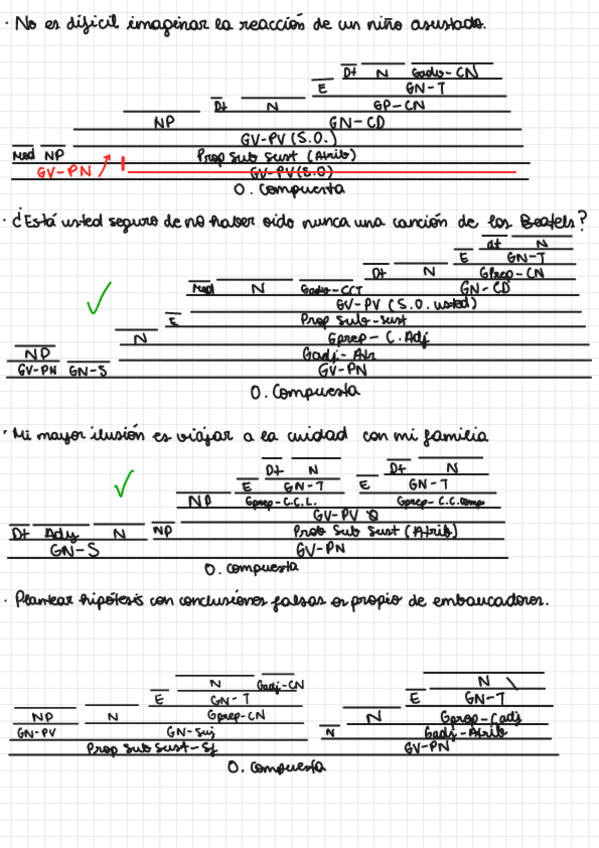 · No es difícil imaginar la reacción de un niño asustado.
Dt N Gadv-CN
E GN-T
Dt N GP-CN
NP GN-CD
GV-PV (S.O.)
Mod NP Prop Sub Sust (Atrib)
GV-PN GV-PV(S.O)
O. Compuesta
· ¿Está usted seguro de no haber oido nunca una canción de los Beatels?
dt N
E GN-T
Dt N GPrep-CN
Mod N Gadv-CCT GN-CD
GV-PV (S.O. usted)
E Prop Sub-Sust
N Gprep-C.Adj
NP Gadj-Atr
GV-PN GN-S GV-PN
O. Compuesta
· Mi mayor ilusión es viajar a la cuidad con mi familia
Dt N Dt N
E GN-T E GN-T
NP Gprep-C.C.L. Gprep-C.C.Comp
GV-PV
Dt Adj N NP Prob Sub Sust (Atrib)
GN-S GV-PN
O. Compuesta
· Plantear hipótesis con conclusiónes falsas es propio de embaucadores.
N Gadj-CN N
E GN-T E GN-T
NP N Gprep-CN N Gprep-Cadj
GN-PV GN-Suj N Gadj-Atrib
Prop Sub Sust-Sj GV-PN
O. Compuesta